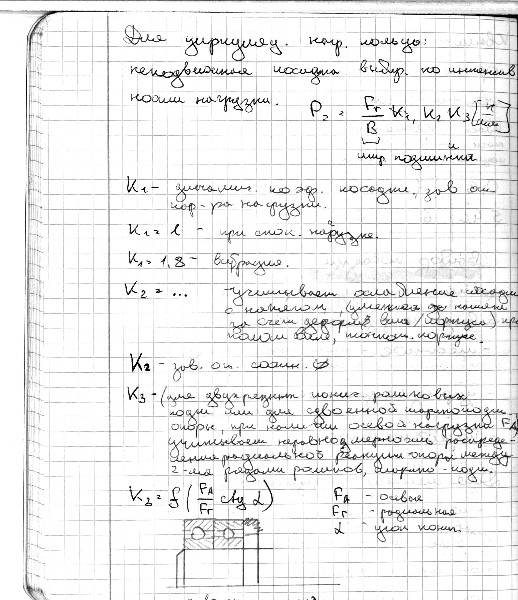 Для циркуляц. нагр. кольца:
неподвижная посадка выбир. по интенсив
ности нагрузки. P₂ = Fr/B · K₁, K₂ K₃ [н/мм]
шир. подшипника
K₁ – динамич. коэф. посадки, зав от
хар-ра нагрузки.
K₁ = 1 – при спок. нагрузке.
K₁ = 1,8 – вибрация.
K₂ = ... – учитывает ослабление посадки
с натягом, (уменьш натяга
за счет деформ вала/корпуса) при
полом вале, тонкост. корпусе.
K₂ – зав. от. соотн. Ø
K₃ – (для двухрядных конич. роликовых
подш или для сдвоенной шарикоподш.
опоры, при наличии осевой нагрузки FA
учитывает неравномерность распреде-
ления радиальной реакции опоры между
2-мя рядами роликов, шарико-подш.
K₃ = f (FA/Fr ctg α)
FA – осевые
Fr – радиальная
α – угол конт.